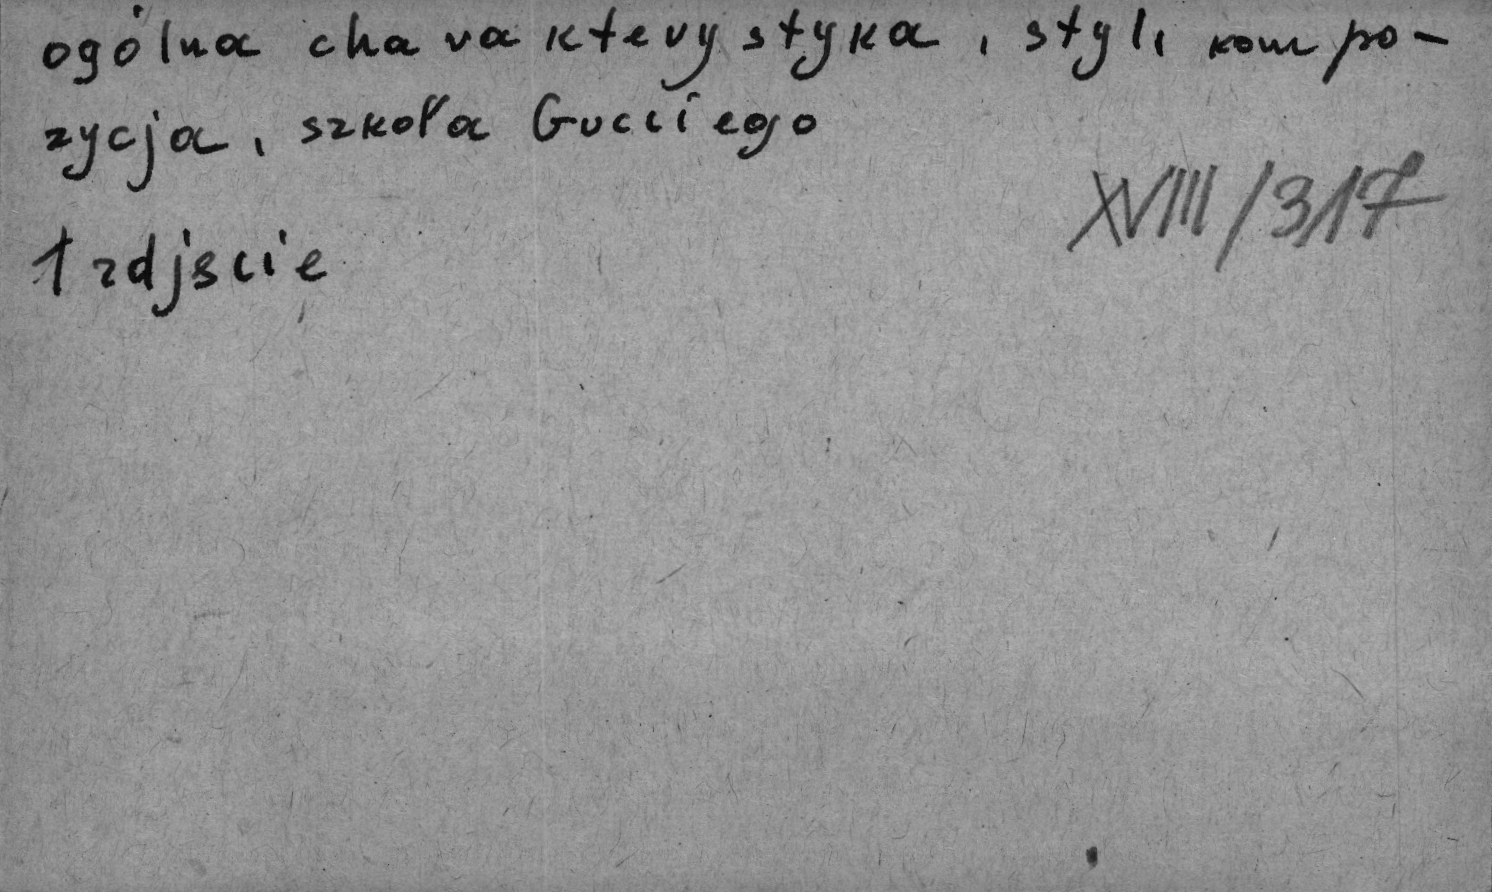 ogólna charakterystyka, styl, kompo-
zycja, szkoła Gucciego
XVIII/317
1 zdjście